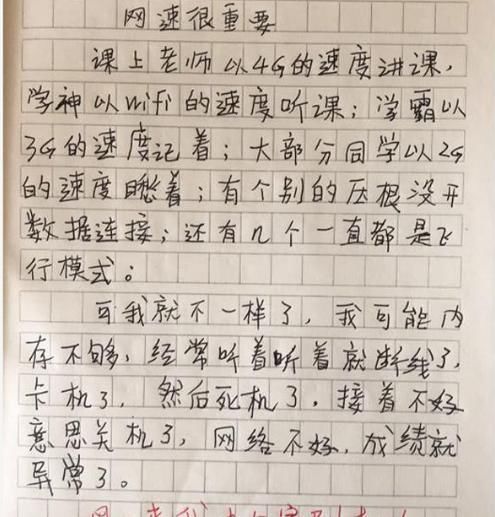 网速很重要
课上老师以4G的速度讲课，
学神以wifi的速度听课；学霸以
3G的速度记着；大部分同学以2G
的速度瞅着；有个别的压根没开
数据连接；还有几个一直都是飞
行模式。
可我就不一样了，我可能内
存不够，经常听着听着就断线了，
卡机了，然后死机了，接着不好
意思关机了，网络不好，成绩就
异常了。